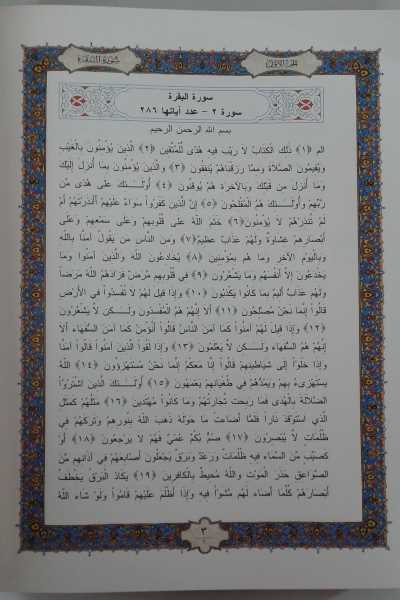 سورة البقرة
سورة ٢ – عدد آياتها ٢٨٦
بسم الله الرحمن الرحيم
الم ﴿١﴾ ذَلِكَ الْكِتَابُ لاَ رَيْبَ فِيهِ هُدًى لِّلْمُتَّقِينَ ﴿٢﴾ الَّذِينَ يُؤْمِنُونَ بِالْغَيْبِ
وَيُقِيمُونَ الصَّلاةَ وَمِمَّا رَزَقْنَاهُمْ يُنفِقُونَ ﴿٣﴾ والَّذِينَ يُؤْمِنُونَ بِمَا أُنزِلَ إِلَيْكَ
وَمَا أُنزِلَ مِن قَبْلِكَ وَبِالآخِرَةِ هُمْ يُوقِنُونَ ﴿٤﴾ أُوْلَـئِكَ عَلَى هُدًى مِّن
رَّبِّهِمْ وَأُوْلَـئِكَ هُمُ الْمُفْلِحُونَ ﴿٥﴾ إِنَّ الَّذِينَ كَفَرُواْ سَوَاءٌ عَلَيْهِمْ أَأَنذَرْتَهُمْ أَمْ
لَمْ تُنذِرْهُمْ لاَ يُؤْمِنُونَ ﴿٦﴾ خَتَمَ اللّهُ عَلَى قُلُوبِهمْ وَعَلَى سَمْعِهِمْ وَعَلَى
أَبْصَارِهِمْ غِشَاوَةٌ وَلَهُمْ عَذَابٌ عظِيمٌ ﴿٧﴾ وَمِنَ النَّاسِ مَن يَقُولُ آمَنَّا بِاللّهِ
وَبِالْيَوْمِ الآخِرِ وَمَا هُم بِمُؤْمِنِينَ ﴿٨﴾ يُخَادِعُونَ اللّهَ وَالَّذِينَ آمَنُوا وَمَا
يَخْدَعُونَ إِلاَّ أَنفُسَهُم وَمَا يَشْعُرُونَ ﴿٩﴾ فِي قُلُوبِهِم مَّرَضٌ فَزَادَهُمُ اللّهُ مَرَضاً
وَلَهُم عَذَابٌ أَلِيمٌ بِمَا كَانُوا يَكْذِبُونَ ﴿١٠﴾ وَإِذَا قِيلَ لَهُمْ لاَ تُفْسِدُواْ فِي الأَرْضِ
قَالُواْ إِنَّمَا نَحْنُ مُصْلِحُونَ ﴿١١﴾ أَلا إِنَّهُمْ هُمُ الْمُفْسِدُونَ وَلَـكِن لاَّ يَشْعُرُونَ
﴿١٢﴾ وَإِذَا قِيلَ لَهُمْ آمِنُواْ كَمَا آمَنَ النَّاسُ قَالُواْ أَنُؤْمِنُ كَمَا آمَنَ السُّفَهَاء أَلا
إِنَّهُمْ هُمُ السُّفَهَاء وَلَـكِن لاَّ يَعْلَمُونَ ﴿١٣﴾ وَإِذَا لَقُواْ الَّذِينَ آمَنُواْ قَالُواْ آمَنَّا
وَإِذَا خَلَوْاْ إِلَى شَيَاطِينِهِمْ قَالُواْ إِنَّا مَعَكْمْ إِنَّمَا نَحْنُ مُسْتَهْزِؤُونَ ﴿١٤﴾ اللّهُ
يَسْتَهْزِىءُ بِهِمْ وَيَمُدُّهُمْ فِي طُغْيَانِهِمْ يَعْمَهُونَ ﴿١٥﴾ أُوْلَـئِكَ الَّذِينَ اشْتَرُوُاْ
الضَّلاَلَةَ بِالْهُدَى فَمَا رَبِحَت تِّجَارَتُهُمْ وَمَا كَانُواْ مُهْتَدِينَ ﴿١٦﴾ مَثَلُهُمْ كَمَثَلِ
الَّذِي اسْتَوْقَدَ نَاراً فَلَمَّا أَضَاءتْ مَا حَوْلَهُ ذَهَبَ اللّهُ بِنُورِهِمْ وَتَرَكَهُمْ فِي
ظُلُمَاتٍ لاَّ يُبْصِرُونَ ﴿١٧﴾ صُمٌّ بُكْمٌ عُمْيٌ فَهُمْ لاَ يَرْجِعُونَ ﴿١٨﴾ أَوْ
كَصَيِّبٍ مِّنَ السَّمَاءِ فِيهِ ظُلُمَاتٌ وَرَعْدٌ وَبَرْقٌ يَجْعَلُونَ أَصْابِعَهُمْ فِي آذَانِهِم مِّنَ
الصَّوَاعِقِ حَذَرَ الْمَوْتِ واللّهُ مُحِيطٌ بِالْكافِرِينَ ﴿١٩﴾ يَكَادُ الْبَرْقُ يَخْطَفُ
أَبْصَارَهُمْ كُلَّمَا أَضَاء لَهُم مَّشَوْاْ فِيهِ وَإِذَا أَظْلَمَ عَلَيْهِمْ قَامُواْ وَلَوْ شَاء اللّهُ
٣